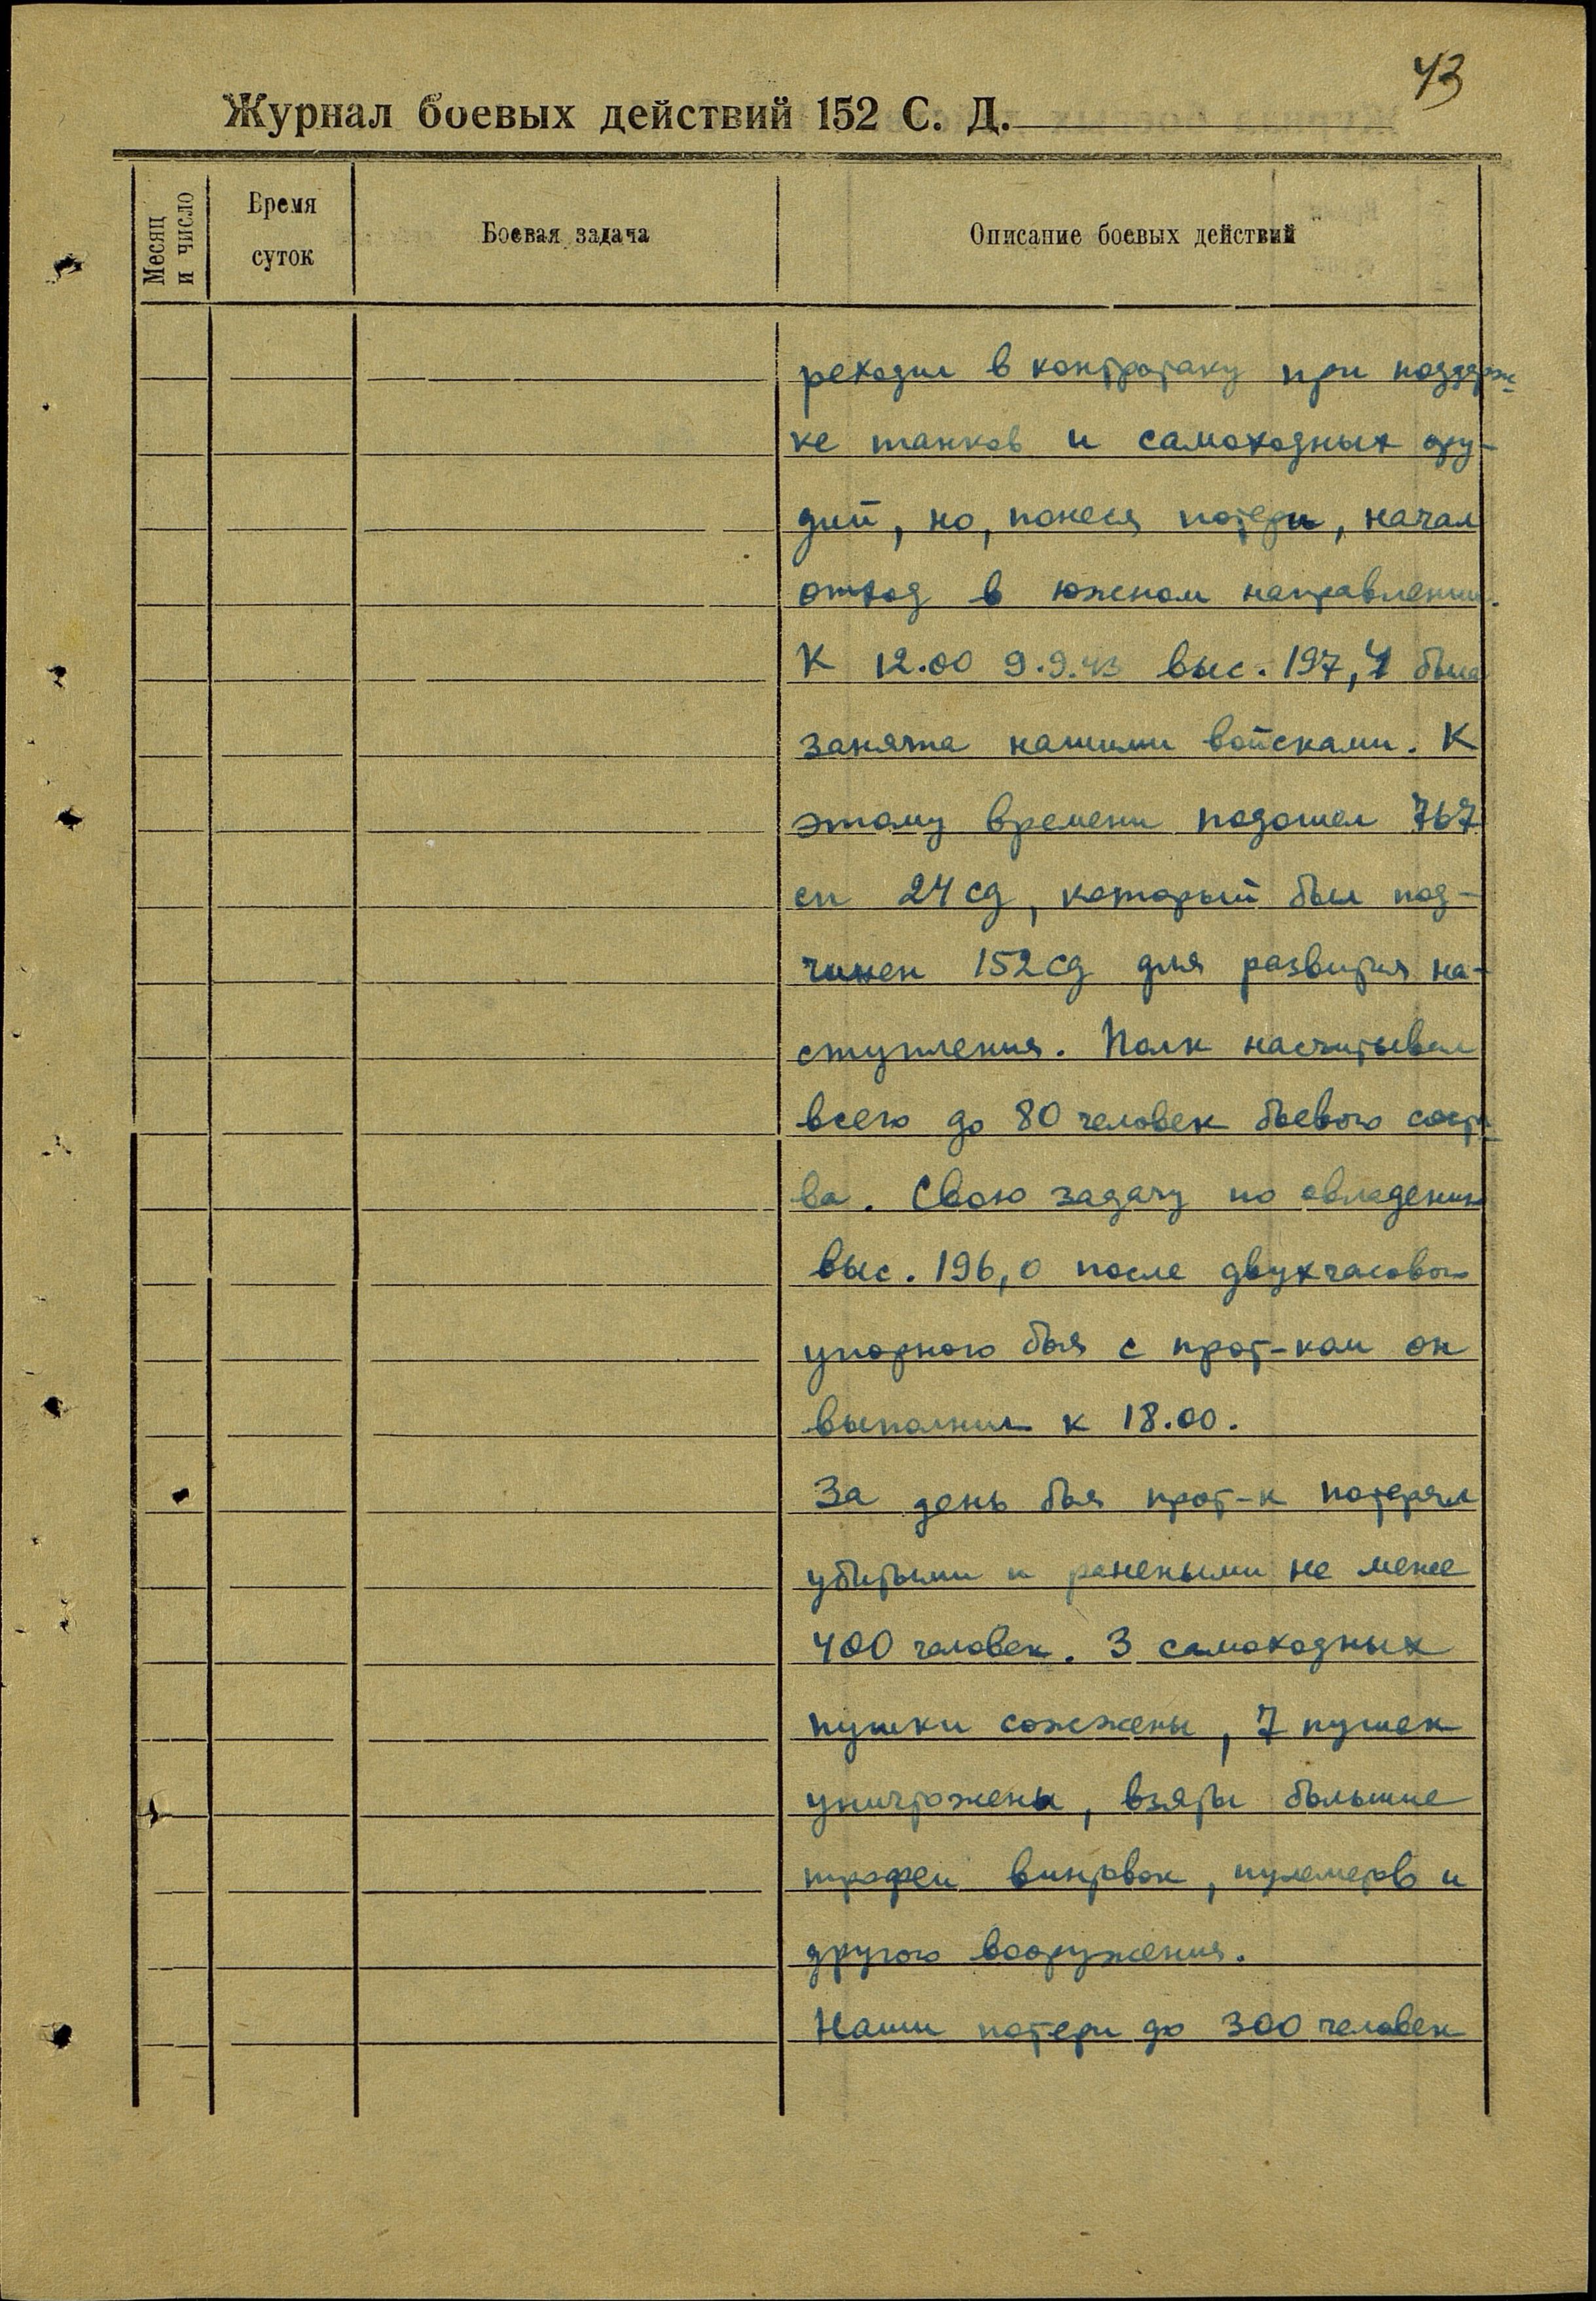 43
Журнал боевых действий 152 С. Д.
Месяц и число
Время суток
Боевая задача
Описание боевых действий
реходил в контратаку при поддерж-
ке танков и самоходных ору-
дий, но, понеся потери, начал
отход в южном направлении.
К 12.00 9.9.43 выс. 197,4 была
занята нашими войсками. К
этому времени подошел 767
сп 24 сд, который был под-
чинен 152 сд для развития на-
ступления. Полк насчитывал
всего до 80 человек боевого соста-
ва. Свою задачу по овладению
выс. 196,0 после двухчасового
упорного боя с прот-ком он
выполнил к 18.00.
За день боя прот-к потерял
убитыми и ранеными не менее
400 человек. 3 самоходных
пушки сожжены, 7 пушек
уничтожены, взяты большие
трофеи винтовок, пулеметов и
другого вооружения.
Наши потери до 300 человек